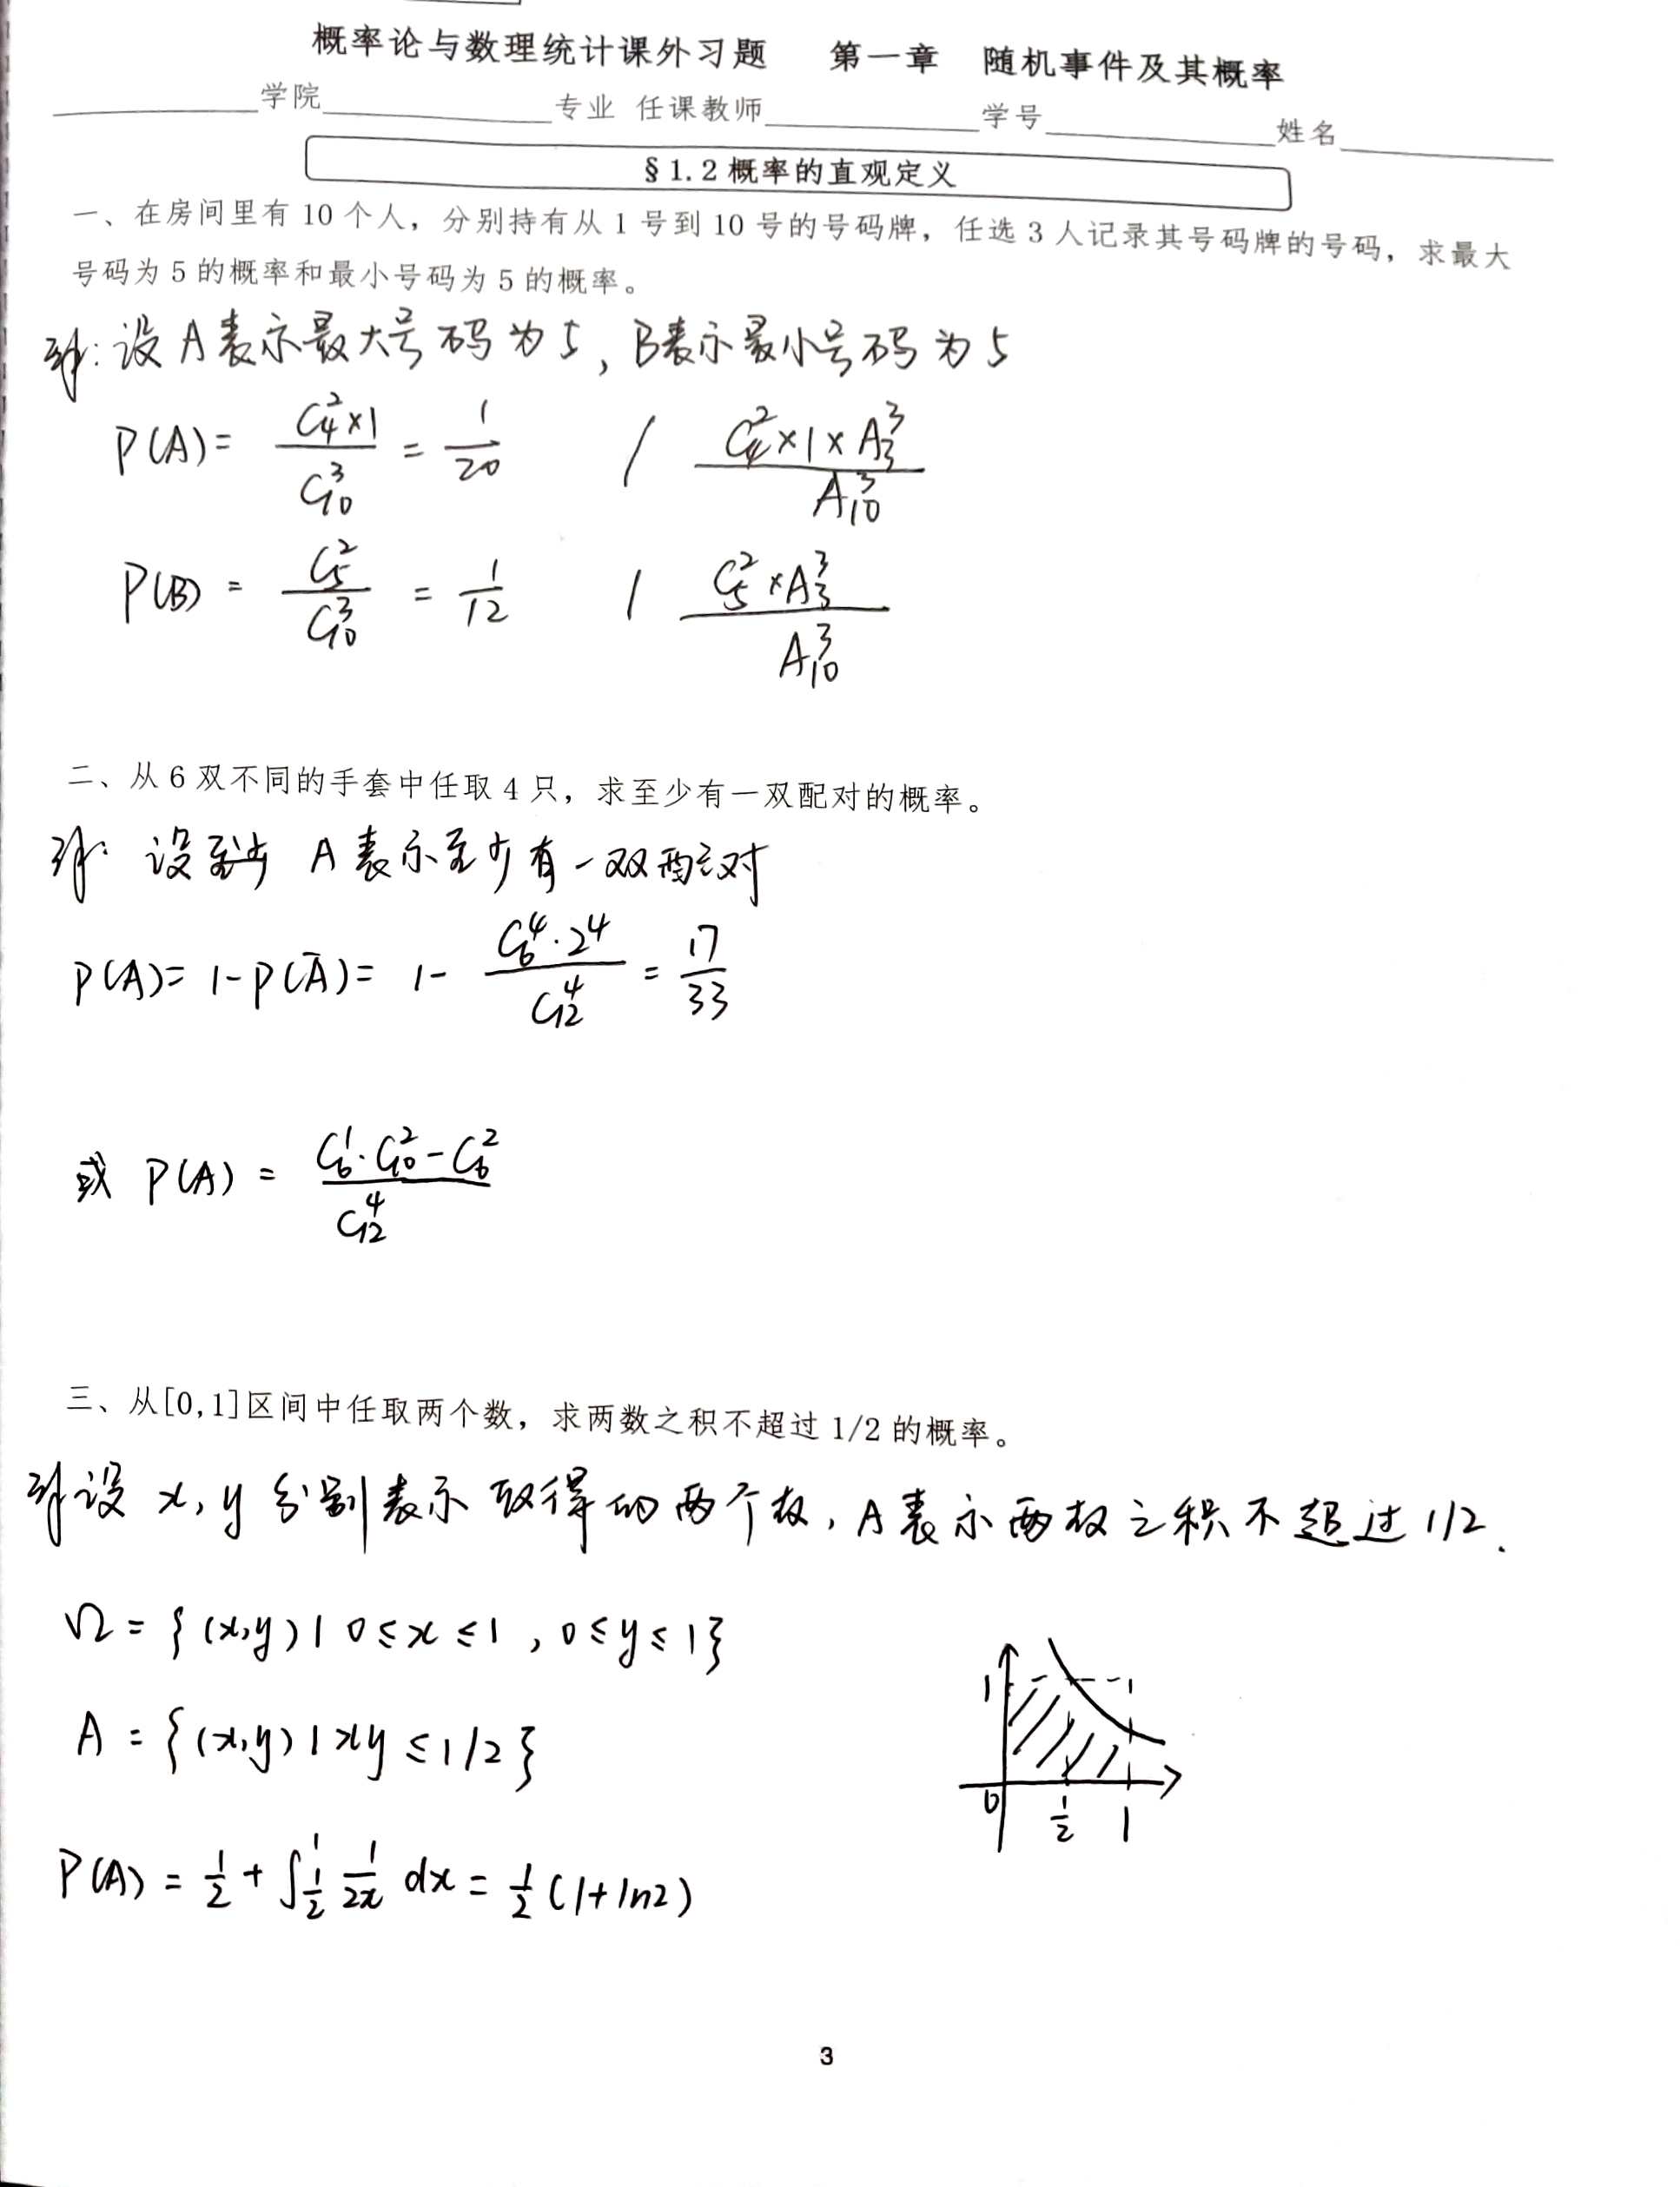 概率论与数理统计课外习题 第一章 随机事件及其概率
学院 专业 任课教师 学号 姓名
§1.2 概率的直观定义
一、在房间里有 10 个人，分别持有从 1 号到 10 号的号码牌，任选 3 人记录其号码牌的号码，求最大
号码为 5 的概率和最小号码为 5 的概率。
解:设 A 表示最大号码为5，B表示最小号码为5
P(A)= \frac{C_4^2×1}{C_{10}^3} = \frac{1}{20} / \frac{C_4^2×1×A_3^3}{A_{10}^3}
P(B) = \frac{C_5^2}{C_{10}^3} = \frac{1}{12} / \frac{C_5^2×A_3^3}{A_{10}^3}
二、从 6 双不同的手套中任取 4 只，求至少有一双配对的概率。
解: 设 A 表示至少有一双配对
P(A)= 1-P(\bar{A})= 1- \frac{C_6^4·2^4}{C_{12}^4} = \frac{17}{33}
或 P(A) = \frac{C_6^1·C_{10}^2-C_6^2}{C_{12}^4}
三、从[0,1]区间中任取两个数，求两数之积不超过 1/2 的概率。
解设 x, y 分别表示取得的两个数，A表示两数之积不超过 1/2.
Ω = {(x,y) | 0≤x≤1 , 0≤y≤1}
A = {(x,y) | xy ≤ 1/2}
1
0 \frac{1}{2} 1
P(A) = \frac{1}{2} + ∫_{\frac{1}{2}}^{1} \frac{1}{2x} dx = \frac{1}{2} (1+ln2)
3